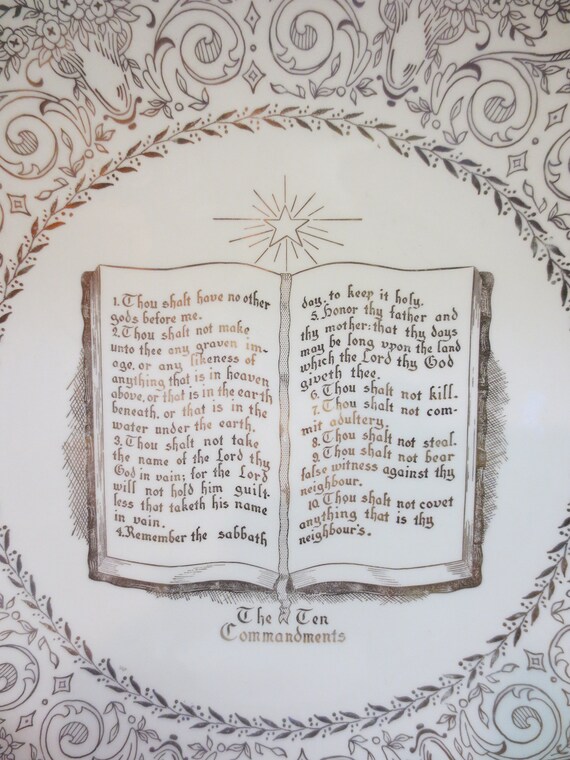 1. Thou shalt have no other
gods before me.
2. Thou shalt not make
unto thee any graven im-
age, or any likeness of
anything that is in heaven
above, or that is in the earth
beneath, or that is in the
water under the earth.
3. Thou shalt not take
the name of the Lord thy
God in vain; for the Lord
will not hold him guilt-
less that taketh his name
in vain.
4. Remember the sabbath
day, to keep it holy.
5. Honor thy father and
thy mother: that thy days
may be long upon the land
which the Lord thy God
giveth thee.
6. Thou shalt not kill.
7. Thou shalt not com-
mit adultery.
8. Thou shalt not steal.
9. Thou shalt not bear
false witness against thy
neighbour.
10. Thou shalt not covet
anything that is thy
neighbour's.
The Ten
Commandments